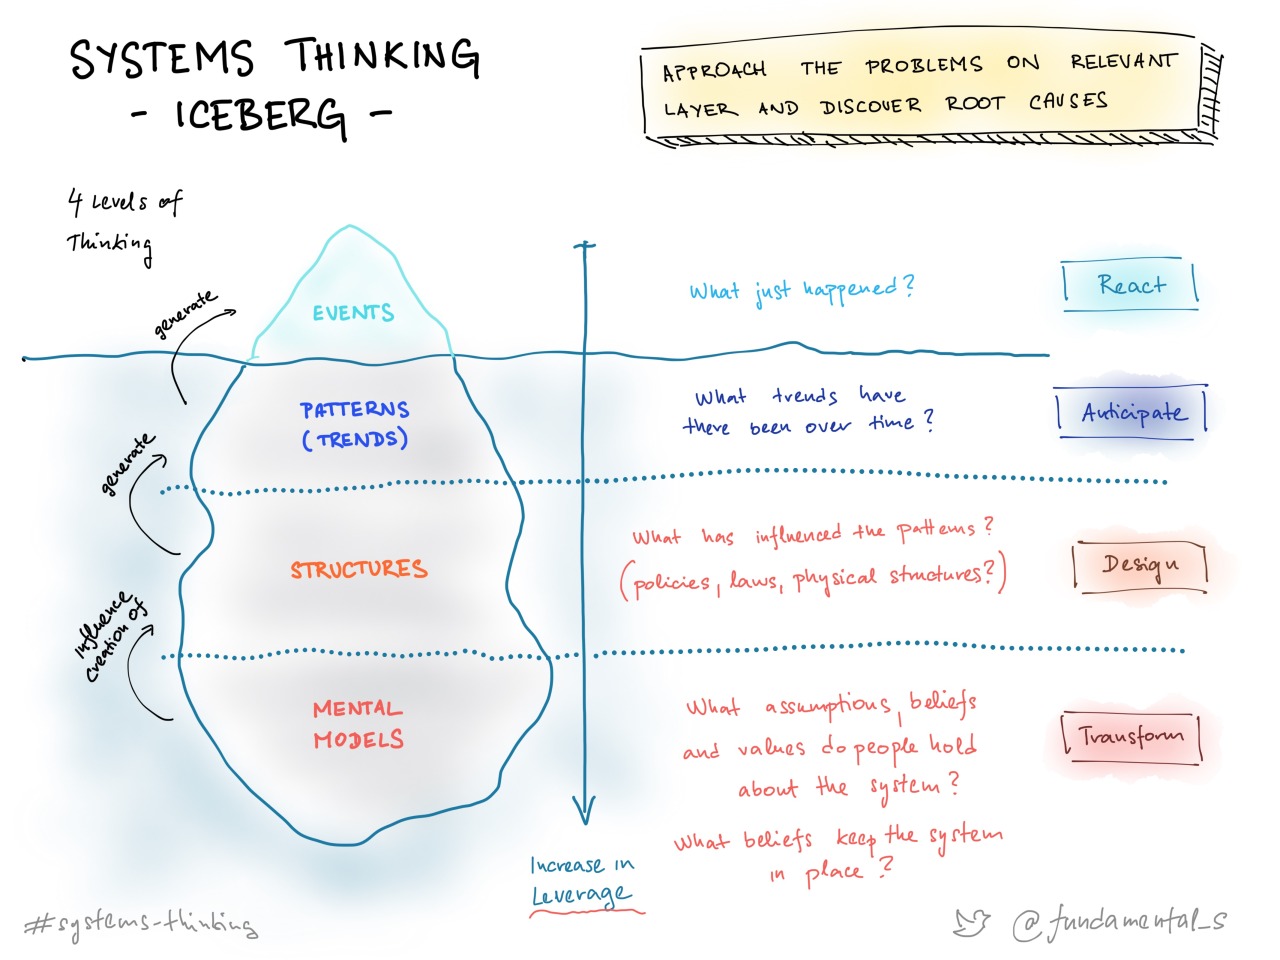 SYSTEMS THINKING
- ICEBERG -
APPROACH THE PROBLEMS ON RELEVANT
LAYER AND DISCOVER ROOT CAUSES
4 Levels of
Thinking
generate
EVENTS
What just happened?
React
generate
PATTERNS
(TRENDS)
What trends have
there been over time?
Anticipate
Influence
creation of
STRUCTURES
What has influenced the patterns?
(policies, laws, physical structures?)
Design
MENTAL
MODELS
What assumptions, beliefs
and values do people hold
about the system?
What beliefs keep the system
in place?
Transform
Increase in
Leverage
#systems-thinking
@fundamental_s